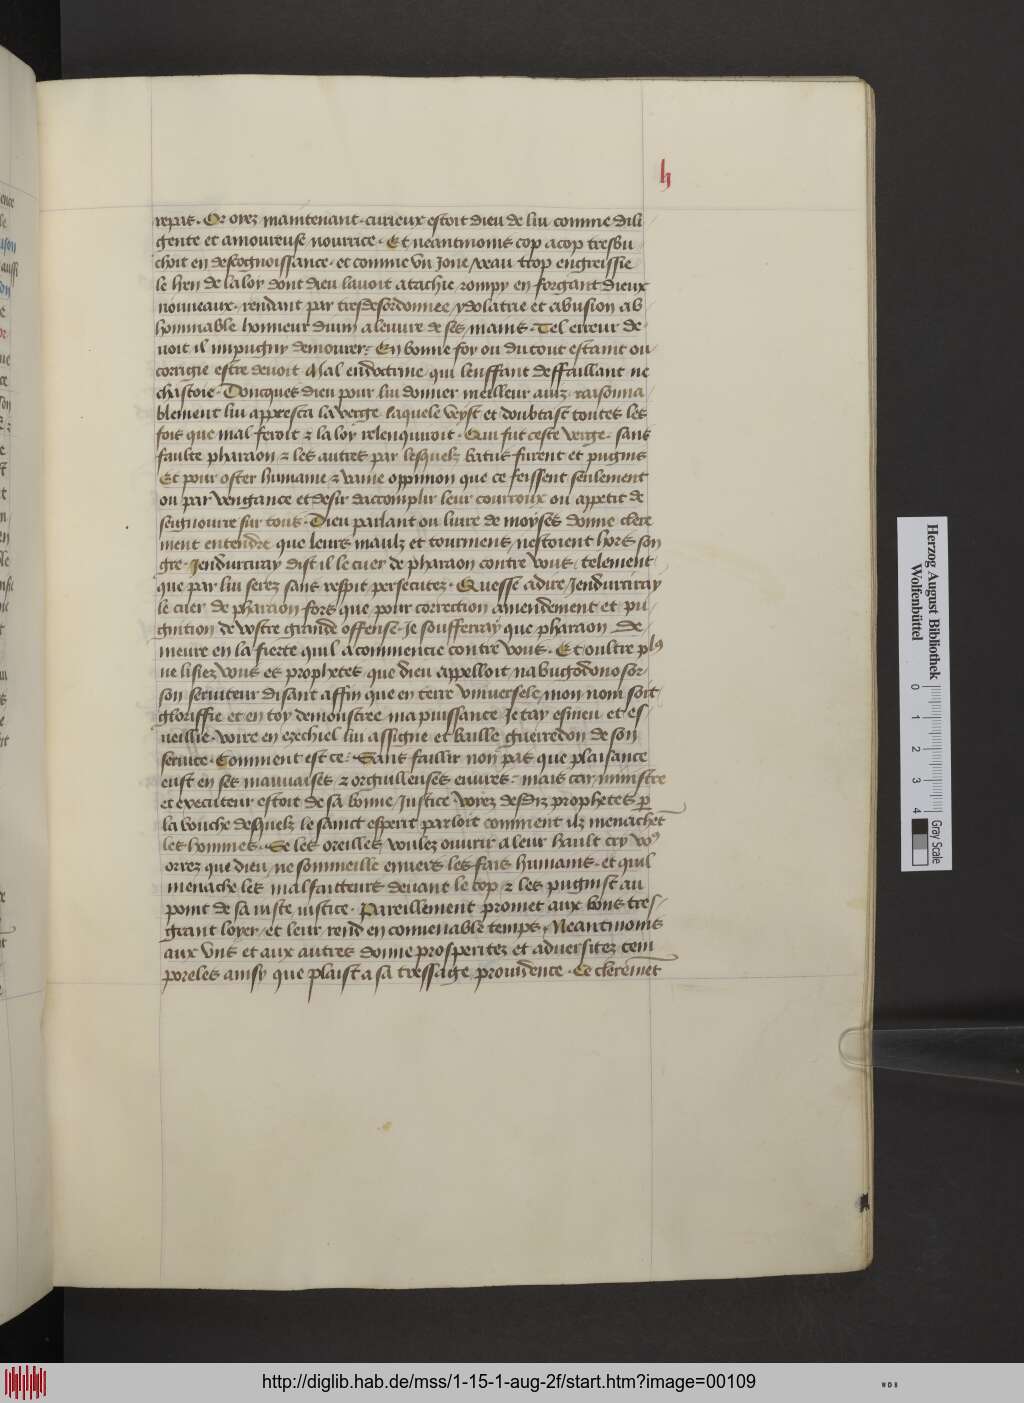 h
repas. Or orez maintenant. curieux estoit dieu de lui comme dili
gente et amoureuse nourrice. Et neantmoins cop a cop tresbu
choit en descognoissance. et comme vn Jone veau trop engreissie
le lien de la loy dont dieu lauoit atachie rompy en forgant dieux
nouueaux. rendant par tresdesordonnee ydolatrie et abusion ab
hominable honneur diuin a leuure de ses mains. Tel erreur de
uoit il impugny demourer. En bonne foy ou du tout estaint ou
corrigie estre deuoit. Mal endoctrine qui lenffant deffaillant ne
chastoie. Doncques dieu pour lui donner meilleur auiz. raisonna
blement lui appresta la verge. laquele veyst et doubtast toutes les
fois que mal feroit z la loy relenquiroit. Qui fut ceste verge. sans
faulte pharaon z les autres par lesquelz batus furent et pugnis
Et pour oster humaine z vaine oppinion que ce feissent seulement
ou par vengance et desir daccomplir leur courroux ou appetit de
seignourie sur tous. Dieu parlant ou liure de moyses donne clere
ment entendre que leurs maulz et tourmens nestoient hors son
gre. Jendurciray dist il le cuer de pharaon contre vous. telement
que par lui serez sans respit persecutez. Quesse a dire Jendurciray
le cuer de pharaon. fors que pour correction amendement et pu
gnition de vostre grande offense. Je soufferray que pharaon de
meure en la fierte quil a commencie contre vous. Et oultre plus
ne lisiez vous es prophetes que dieu appelloit nabugodonosor
son seruiteur disant affin que en terre vniuersele mon nom soit
gloriffie et en toy demonstree ma puissance Je tay esmeu et es
ueillie. voire en ezechiel lui assigne et baille guerredon de son
seruice. Comment est ce. Sans faillir non pas que plaisance
eust en ses mauuaises z orguilleuses euures. mais car ministre
et executeur estoit de sa bonne Justice. voyez desdiz prophetes p
la bouche desquelz le sainct esperit parloit comment ilz menachet
les hommes. Se les oreilles voulez ouurir a leur hault cry vo9
orrez que dieu ne sommeille enuers les fais humains. et quil
menache les malfaitteurs deuant le cop z les pugnist au
point de sa iuste iustice. Pareillement promet aux bons tres
grant loyer et leur rend en conuenable temps. Neantmoins
aux vns et aux autres donne prosperitez et aduersitez tem
poreles ainsy que plaist a sa tressage prouidence. Ce cleremet
Herzog August Bibliothek
Wolfenbüttel
0 1 2 3 4
Gray Scale
http://diglib.hab.de/mss/1-15-1-aug-2f/start.htm?image=00109